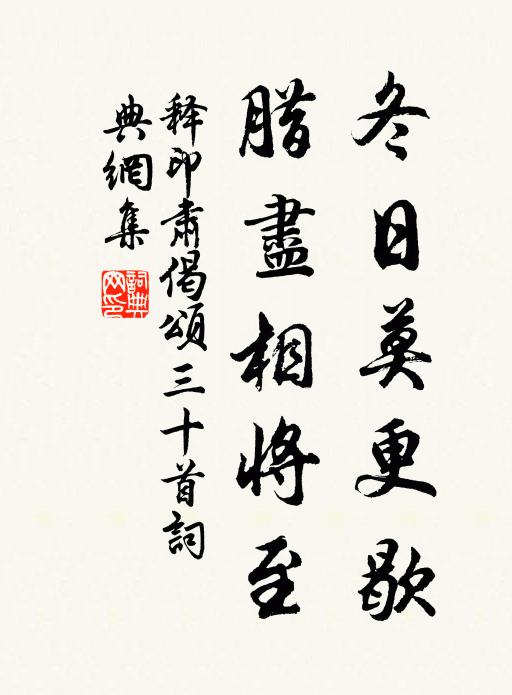 冬日莫更歇
腊盡相將至
释印肅偈頌三十首詞
典網集
詞典網印